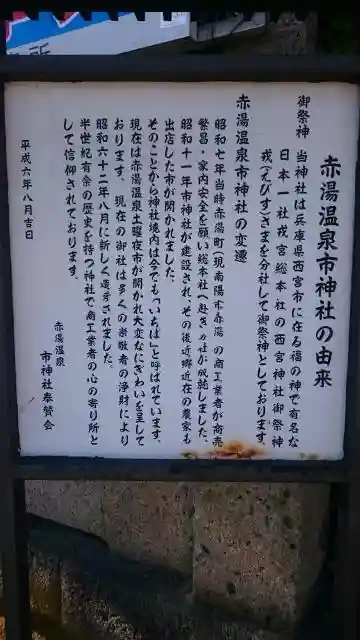 赤湯温泉市神社の由来
御祭神 当神社は兵庫県西宮市に在る福の神で有名な
日本一社戎宮総本社の西宮神社御祭神
戎(えびす)さまを分社して御祭神としております。
赤湯温泉市神社の変遷
昭和七年当時赤湯町(現南陽市赤湯)の商工業者が商売
繁昌・家内安全を願い総本社へ赴き分社が成就しました。
昭和十一年市神社が建設され、その後近郷近在の農家も
出店した市が開かれました。
そのことから神社境内は今でも「いちば」と呼ばれています。
現在は赤湯温泉土曜夜市が開かれ大変なにぎわいを呈して
おります。現在の御社は多くの崇敬者の浄財により
昭和六十二年八月に新しく造営されました。
半世紀有余の歴史を持つ神社で商工業者の心の寄り所と
して信仰されております。
平成六年八月吉日
赤湯温泉
市神社奉賛会